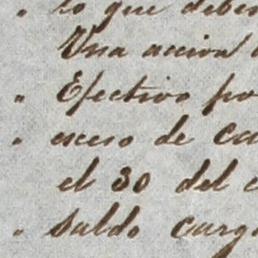 " lo que debe
Una acción
" Efectivo po
" esceso de Ca
el 30 del c
" saldo carg